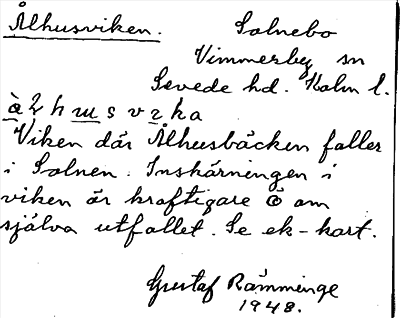 Ålhusviken. Solnebo
Vimmerby sn
Sevede hd. Kalm l.
Viken där Ålhusbäcken faller
i Solnen. Inskärningen i
viken är kraftigare ö om
själva utfallet. Se ek-kart.
Gustaf Rämminge
1948.